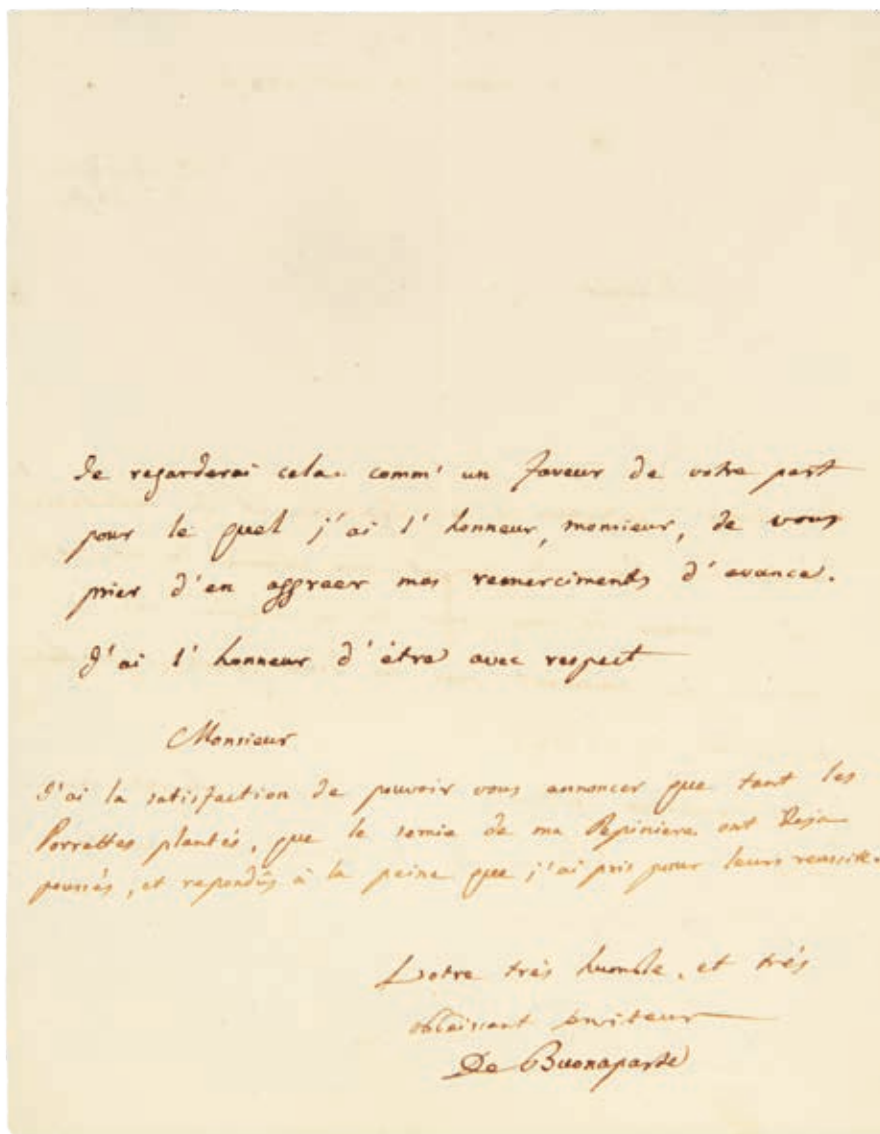 Je regarderai cela comm' un faveur de votre part
pour le quel j'ai l'honneur, monsieur, de vous
prier d'en aggreer mes remerciments d'avance.
J'ai l'honneur d'être avec respect
Monsieur
J'ai la satisfaction de pouvoir vous annoncer que tant les
Porrettes plantés, que le semie de ma Pepiniere ont Deja
poussés, et repondûs à la peine que j'ai pris pour leurs reussite.
Votre trés humble, et trés
obeissant serviteur
De Buonaparte